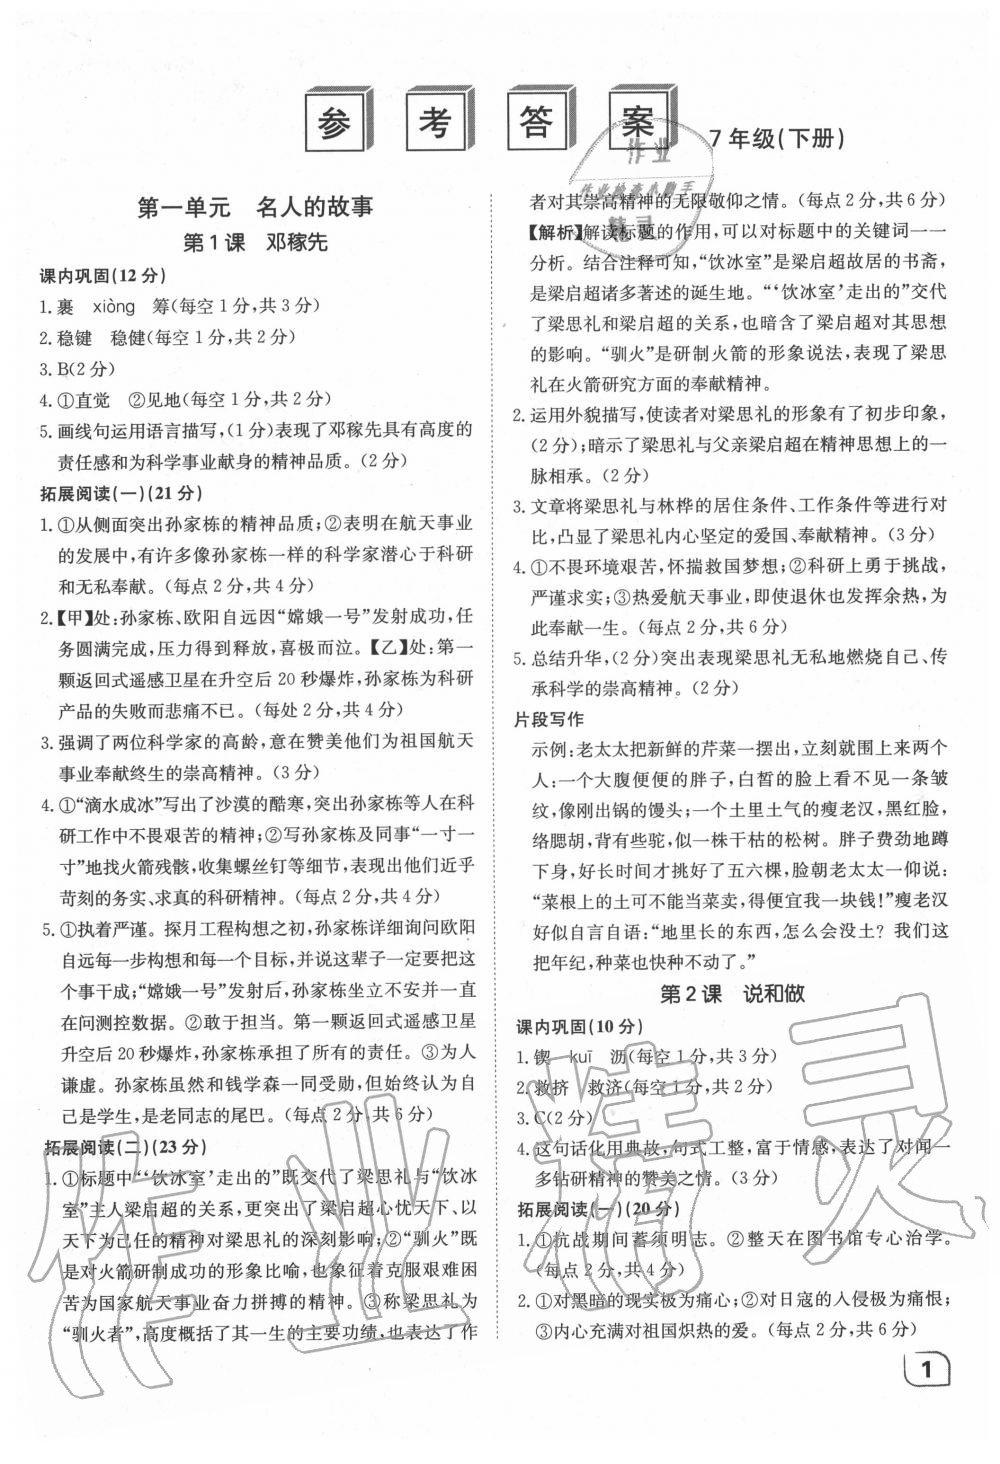 参考答案 7年级(下册)
第一单元 名人的故事
第1课 邓稼先
课内巩固(12分)
1. 襄 xiòng 筹(每空1分,共3分)
2. 稳键 稳健(每空1分,共2分)
3. B(2分)
4. ①直觉 ②见地(每空1分,共2分)
5. 画线句运用语言描写,(1分)表现了邓稼先具有高度的
责任感和为科学事业献身的精神品质。(2分)
拓展阅读(一)(21分)
1. ①从侧面突出孙家栋的精神品质;②表明在航天事业
的发展中,有许多像孙家栋一样的科学家潜心于科研
和无私奉献。(每点2分,共4分)
2.【甲】处:孙家栋、欧阳自远因“嫦娥一号”发射成功,任
务圆满完成,压力得到释放,喜极而泣。【乙】处:第一
颗返回式遥感卫星在升空后20秒爆炸,孙家栋为科研
产品的失败而悲痛不已。(每处2分,共4分)
3. 强调了两位科学家的高龄,意在赞美他们为祖国航天
事业奉献终生的崇高精神。(3分)
4. ①“滴水成冰”写出了沙漠的酷寒,突出孙家栋等人在科
研工作中不畏艰苦的精神;②写孙家栋及同事“一寸一
寸”地找火箭残骸,收集螺丝钉等细节,表现出他们近乎
苛刻的务实、求真的科研精神。(每点2分,共4分)
5. ①执着严谨。探月工程构想之初,孙家栋详细询问欧阳
自远每一步构想和每一个目标,并说这辈子一定要把这
件事干成;“嫦娥一号”发射后,孙家栋坐立不安并一直
在问测控数据。②敢于担当。第一颗返回式遥感卫星
升空后20秒爆炸,孙家栋承担了所有的责任。③为人
谦虚。孙家栋虽然和钱学森一同获得功勋,但始终认为自
己是学生,是老同志的尾巴。(每点2分,共6分)
拓展阅读(二)(23分)
1. ①标题中“‘饮冰室’走出的”既交代了梁思礼与“饮冰
室”主人梁启超的关系,又突出了梁启超心忧天下、以
天下为己任的精神对梁思礼的深刻影响;②“驯火”既
是对火箭研制成功的形象比喻,也象征着克服艰难困
苦为国家航天事业奋力拼搏的精神。③称梁思礼为
“驯火者”,高度概括了其一生的主要功绩,也表达了作
者对其崇高精神的无限敬仰之情。(每点2分,共6分)
【解析】解读标题的作用,可以对标题中的关键词一一
分析。结合注释可知,“饮冰室”是梁启超故居的书斋,
是梁启超诸多著述的诞生地。“‘饮冰室’走出的”交代
了梁思礼和梁启超的关系,也暗含了梁启超对其思想
的影响。“驯火”是研制火箭的形象说法,表现了梁思
礼在火箭研究方面的奉献精神。
2. 运用外貌描写,使读者对梁思礼的形象有了初步印象,
(2分);暗示了梁思礼与父亲梁启超在精神思想上的一
脉相承。(2分)
3. 文章将梁思礼与林桦的居住条件、工作条件等进行对
比,凸显了梁思礼内心坚定的爱国、奉献精神。(3分)
4. ①不畏环境艰苦,怀揣救国梦想;②科研上勇于挑战,
严谨求实;③热爱航天事业,即使退休也发挥余热,为
此奉献一生。(每点2分,共6分)
5. 总结升华,(2分)突出表现梁思礼无私地燃烧自己、传
承科学的崇高精神。(2分)
片段写作
示例:老太太把新鲜的芹菜一摆出,立刻就围上来两个
人:一个大腹便便的胖子,白皙的脸上看不见一条皱
纹,像刚出锅的馒头;一个土里土气的瘦老汉,黑红脸,
络腮胡,背有些驼,似一株干枯的松树。胖子费劲地蹲
下身,好长时间才挑好了五六棵,脸朝老太太一仰说:
“菜根上的土可不能当菜卖,得便宜我一块钱!”瘦老汉
好似自言自语:“地里长的东西,怎么会没土?我们这
把年纪,种菜也快种不动了。”
第2课 说和做
课内巩固(10分)
1. 锲 kuī 沥(每空1分,共3分)
2. 救挤 救济(每空1分,共2分)
3. C(2分)
4. 这句话化用典故,句式工整,富于情感,表达了对闻一
多钻研精神的赞美之情。(3分)
拓展阅读(一)(20分)
1. ①抗战期间蓄须明志。②整天在图书馆专心治学。
(每点2分,共4分)
2. ①对黑暗的现实极为痛心;②对日寇的入侵极为痛恨;
③内心充满对祖国炽热的爱。(每点2分,共6分)
1
作业
作业检查小助手
精灵
作业精灵